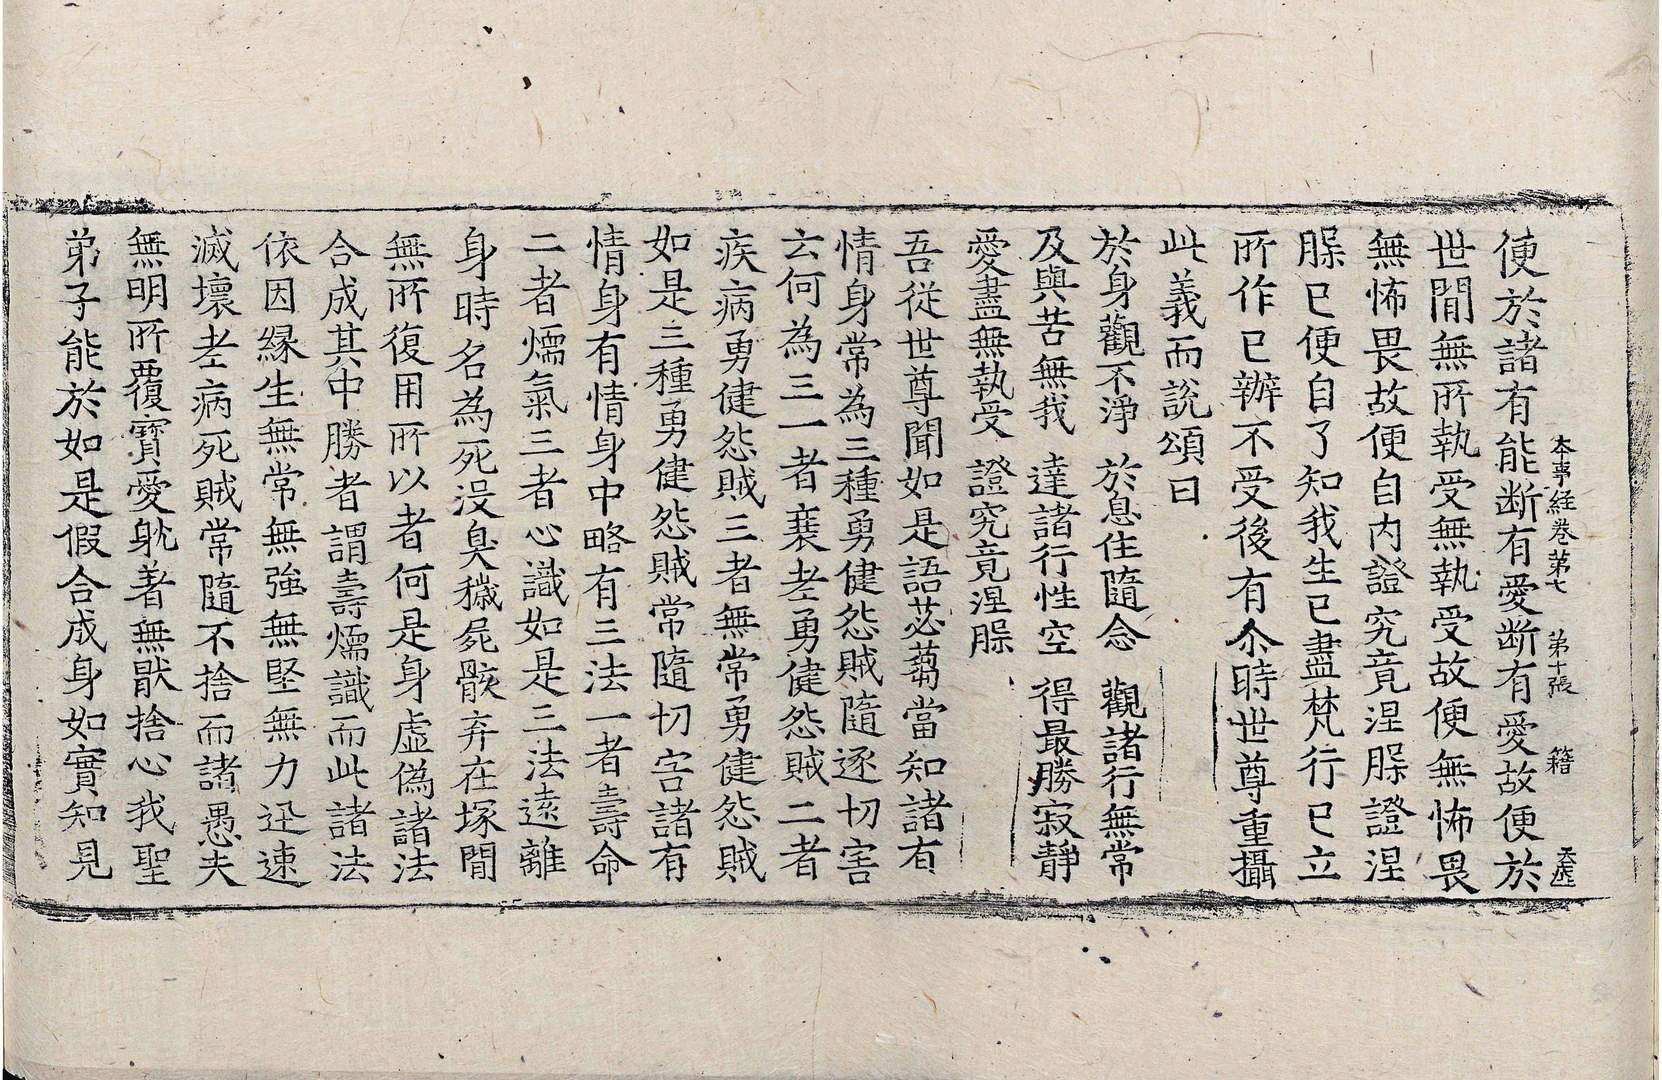 本事経卷第七 第十張 籍
便於諸有能断有愛断有愛故便於
世間無所執受無執受故便無怖畏
無怖畏故便自内證究竟涅槃證涅
槃已便自了知我生已盡梵行已立
所作已辦不受後有尒時世尊重攝
此義而說頌曰
於身觀不淨 於息住隨念 觀諸行無常
及與苦無我 達諸行性空 得最勝寂靜
愛盡無執受 證究竟涅槃
吾從世尊聞如是語苾蒭當知諸有
情身常為三種勇健怨賊隨逐切害
云何為三一者衰老勇健怨賊二者
疾病勇健怨賊三者無常勇健怨賊
如是三種勇健怨賊常隨切害諸有
情身有情身中略有三法一者壽命
二者煗氣三者心識如是三法遠離
身時名為死没臭穢屍骸弃在塚間
無所復用所以者何是身虚偽諸法
合成其中勝者謂壽煗識而此諸法
依因縁生無常無強無堅無力迅速
滅壞老病死賊常隨不捨而諸愚夫
無明所覆寶愛躭著無猒捨心我聖
弟子能於如是假合成身如實知見